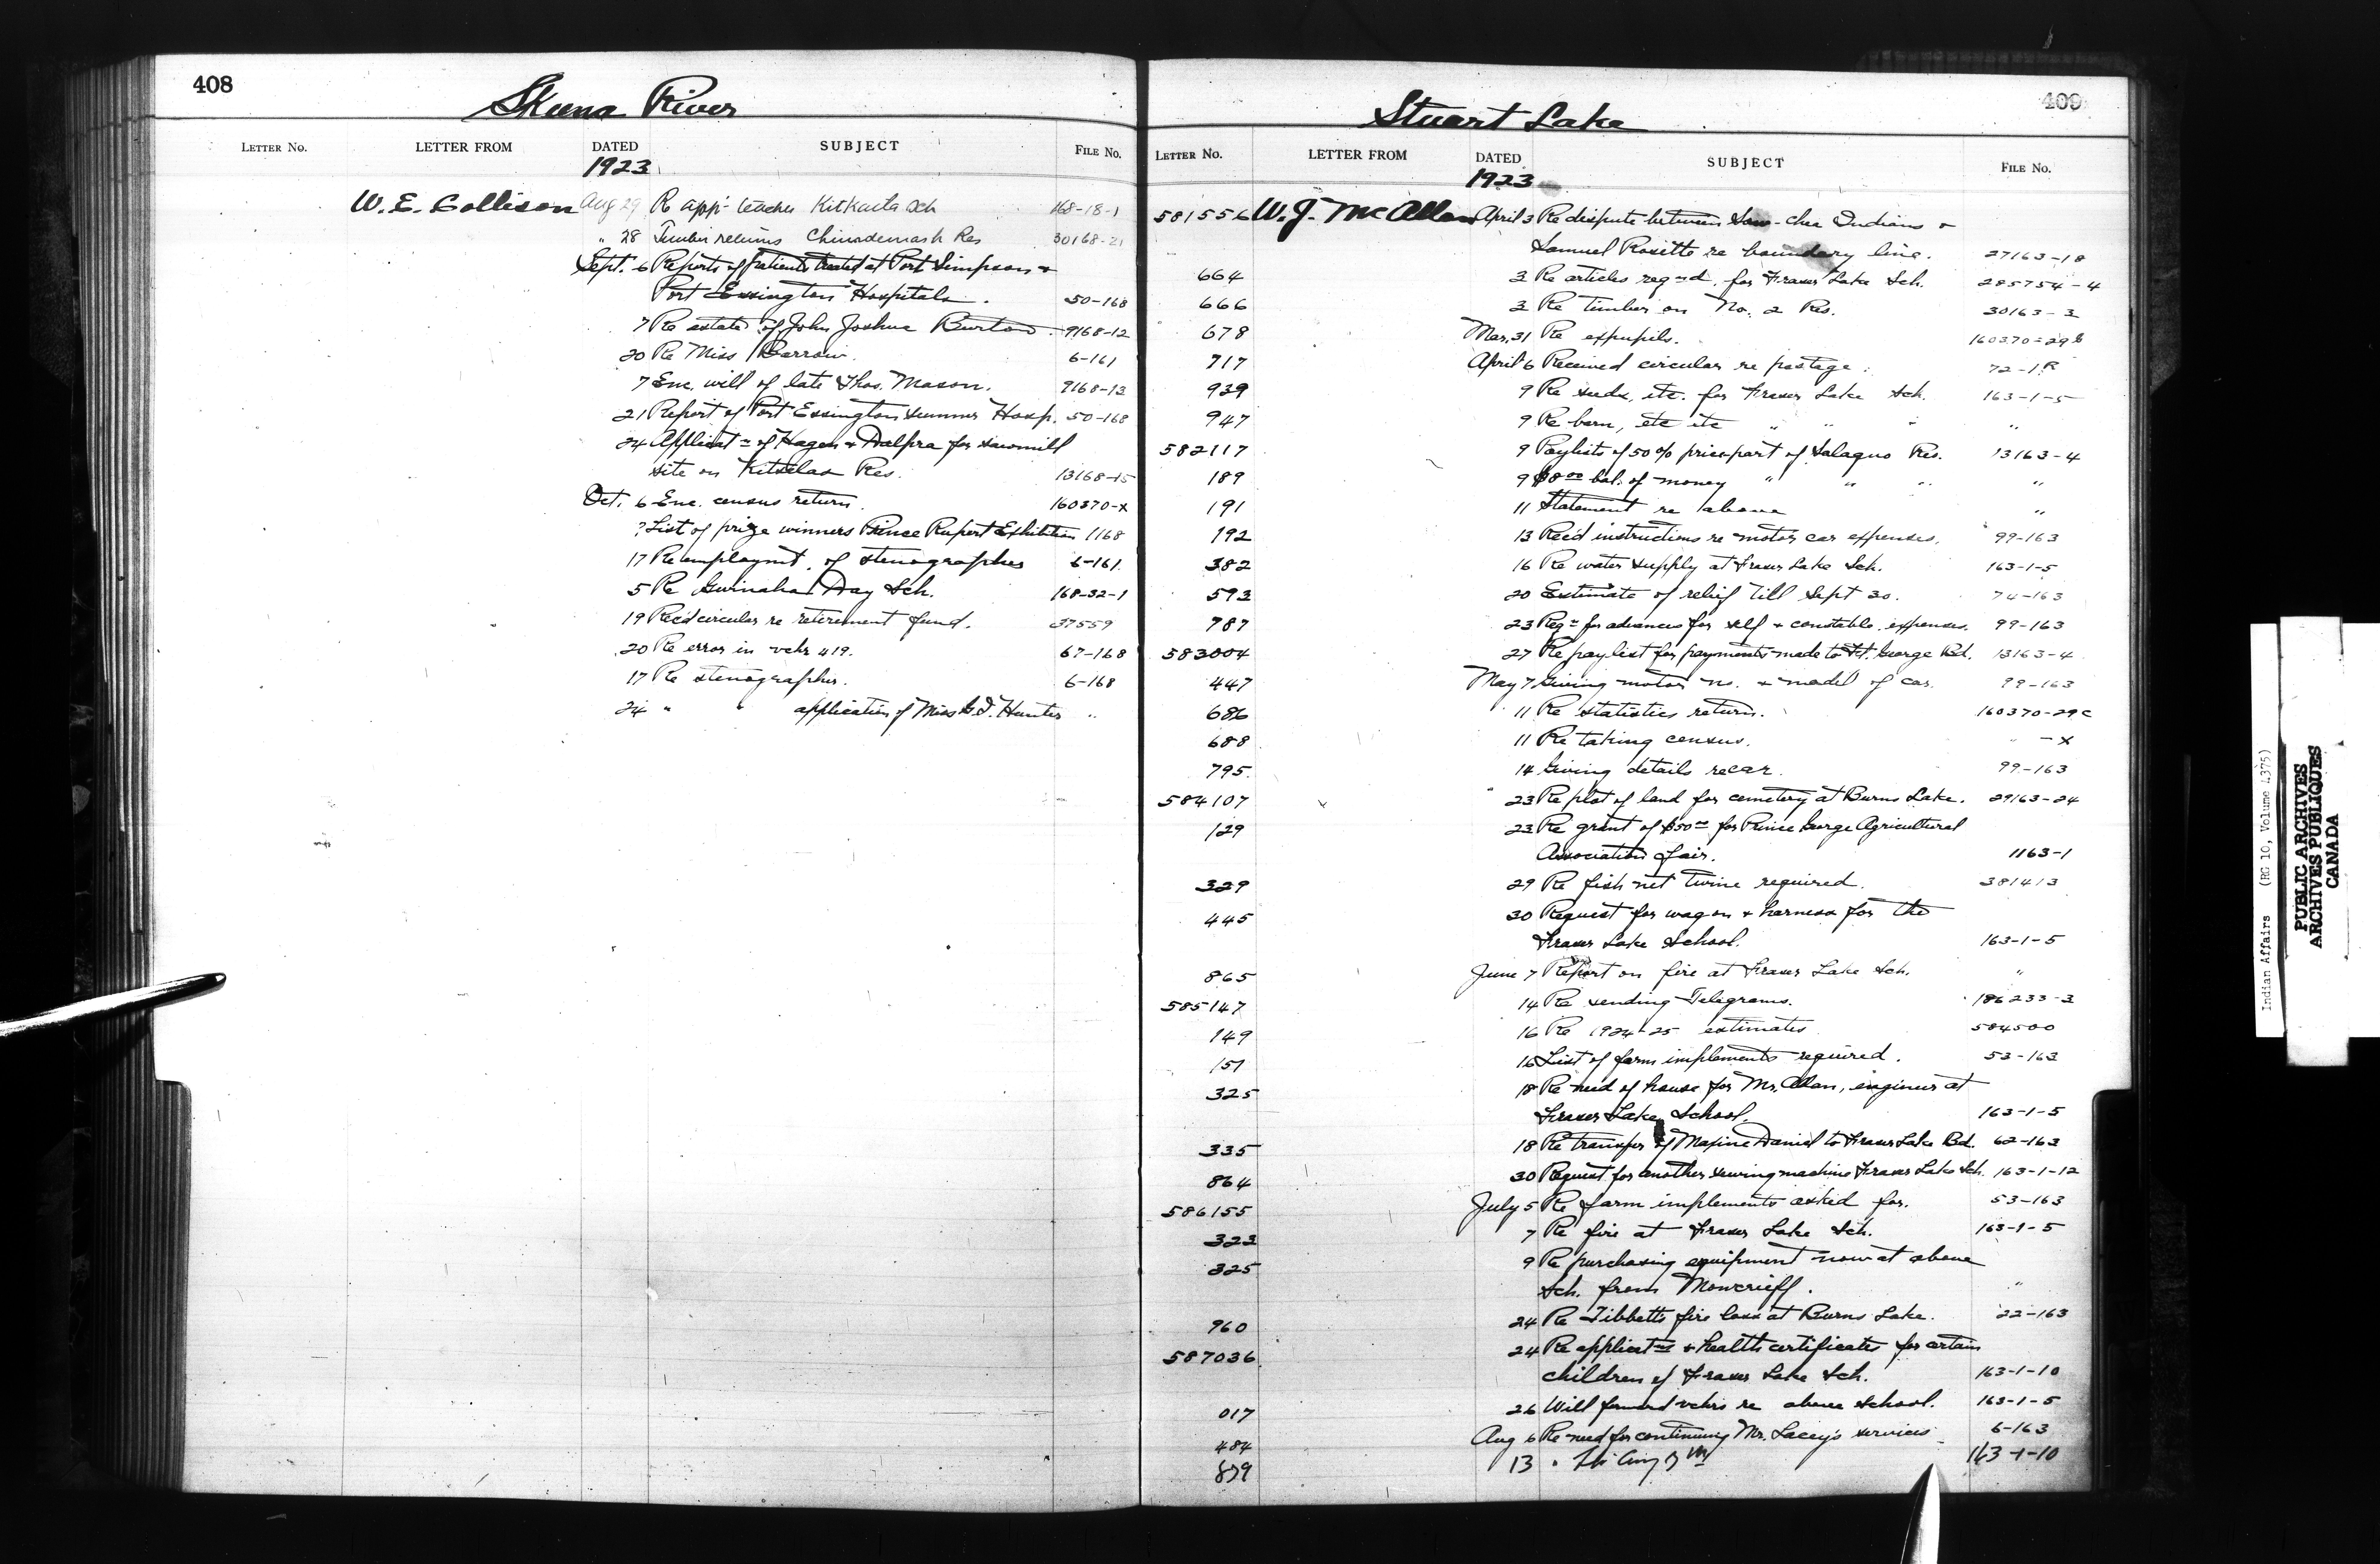 408
Skeena River
LETTER NO. LETTER FROM DATED SUBJECT FILE NO.
1923
W. E. Collison Aug 29 Re app't teacher Kitkaata Sch 168-18-1
" 28 Timber returns Res 30168-21
Sept. 6 Reports of patients treated at Port Simpson &
Port Essington Hospitals. 50-168
7 Re estate of John Joshua Burton. 9168-12
20 Re Miss Barrow. 6-161
7 Enc. will of late Thos. Mason. 9168-13
21 Report of Port Essington summer Hosp. 50-168
24 Applicat'n of Hagen & Dalpra for sawmill
site on Kitselas Res. 13168-15
Oct. 6 Enc. census return. 160370-X
? List of prize winners Prince Rupert Exhibition 1168
17 Re employmt. of stenographer 6-161
5 Re Gwinaha Day Sch. 168-32-1
19 Rec'd circular re retirement fund. 37559
20 Re error in vchr 419. 67-168
17 Re stenographer. 6-168
24 " " application of Miss G. I. Hunter "
409
Stuart Lake
LETTER NO. LETTER FROM DATED SUBJECT FILE NO.
1923
581556 W. J. McAllan April 3 Re dispute between Indians &
Samuel Rosette re boundary line. 27163-18
664 3 Re articles req'd. for Fraser Lake Sch. 285754-4
666 3 Re timber on No. 2 Res. 30163-3
678 Mar. 31 Re expupils. 160370-29
717 April 6 Received circular re postage. 72-1
939 9 Re seeds, etc. for Fraser Lake Sch. 163-1-5
947 9 Re barn, etc etc " " " "
582117 9 Paylists of 50% price part of Salaquo Res. 13163-4
189 9 $8.00 bal. of money " " " "
191 11 Statement re above "
192 13 Rec'd instructions re motor car expenses. 99-163
382 16 Re water supply at Fraser Lake Sch. 163-1-5
593 20 Estimate of relief till Sept 30. 74-163
787 23 Req'n for advances for self & constable. expenses. 99-163
583004 27 Re paylist for payments made to Ft. George Bd. 13163-4
447 May 7 Giving motor no. & model of car. 99-163
686 11 Re statistics return. 160370-29c
688 11 Re taking census. " -X
795 14 Giving details re car. 99-163
584107 23 Re plot of land for cemetery at Burns Lake. 29163-24
129 23 Re grant of $50.00 for Prince George Agricultural
Association fair. 1163-1
329 29 Re fish net twine required. 381413
445 30 Request for wagon & harness for the
Fraser Lake School. 163-1-5
865 June 7 Report on fire at Fraser Lake Sch. "
585147 14 Re sending Telegrams. 186233-3
149 16 Re 1924-25 estimates 584500
151 16 List of farm implements required. 53-163
325 18 Re need of house for Mr. Allan, engineer at
Fraser Lake School. 163-1-5
335 18 Re transfer of Maxine Daniel to Fraser Lake Bd. 62-163
864 30 Request for another sewing machine Fraser Lake Sch. 163-1-12
586155 July 5 Re farm implements asked for. 53-163
323 7 Re fire at Fraser Lake Sch. 163-1-5
325 9 Re purchasing equipment now at above
Sch. from Moncrieff. "
960 24 Re Tibbetts fire loss at Burns Lake. 22-163
587036 24 Re applicat'ns & health certificates for certain
children of Fraser Lake Sch. 163-1-10
017 26 Will forward vchrs re above school. 163-1-5
484 Aug 6 Re need for continuing Mr. Lacey's services 6-163
879 13 163-1-10
Indian Affairs (RG 10, Volume 4375)
PUBLIC ARCHIVES
ARCHIVES PUBLIQUES
CANADA